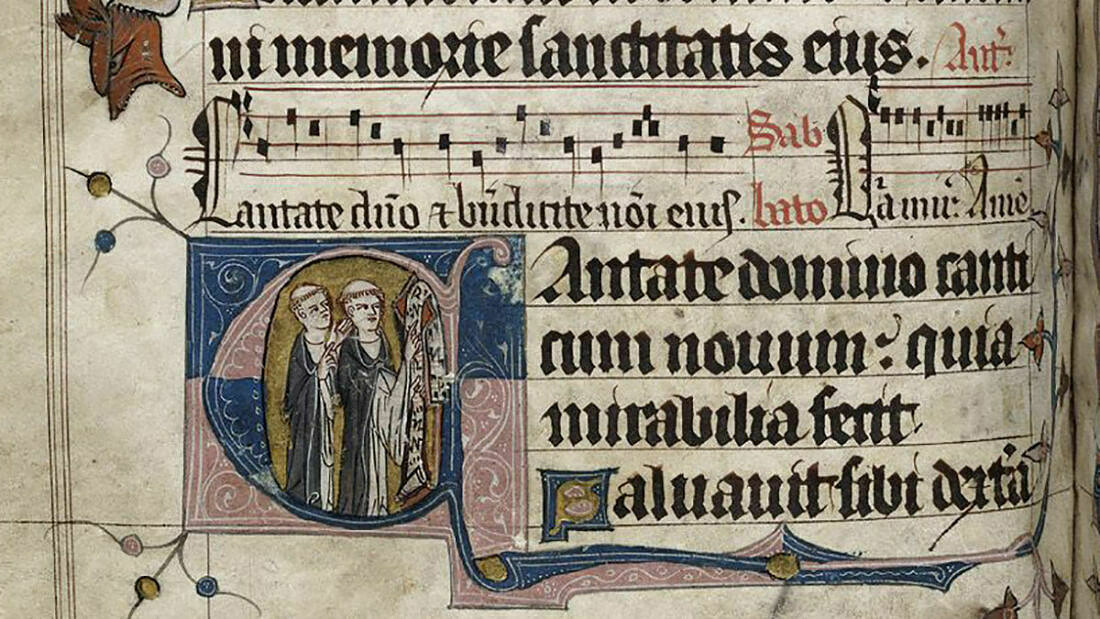 ni memorie sanctitatis eius. Ant̃:
Sab
Cantate dño ⁊ bñdicite nõi eius. bato
Cantate domino canti
cum nouum: quia
mirabilia fecit
Saluauit sibi dextẽra